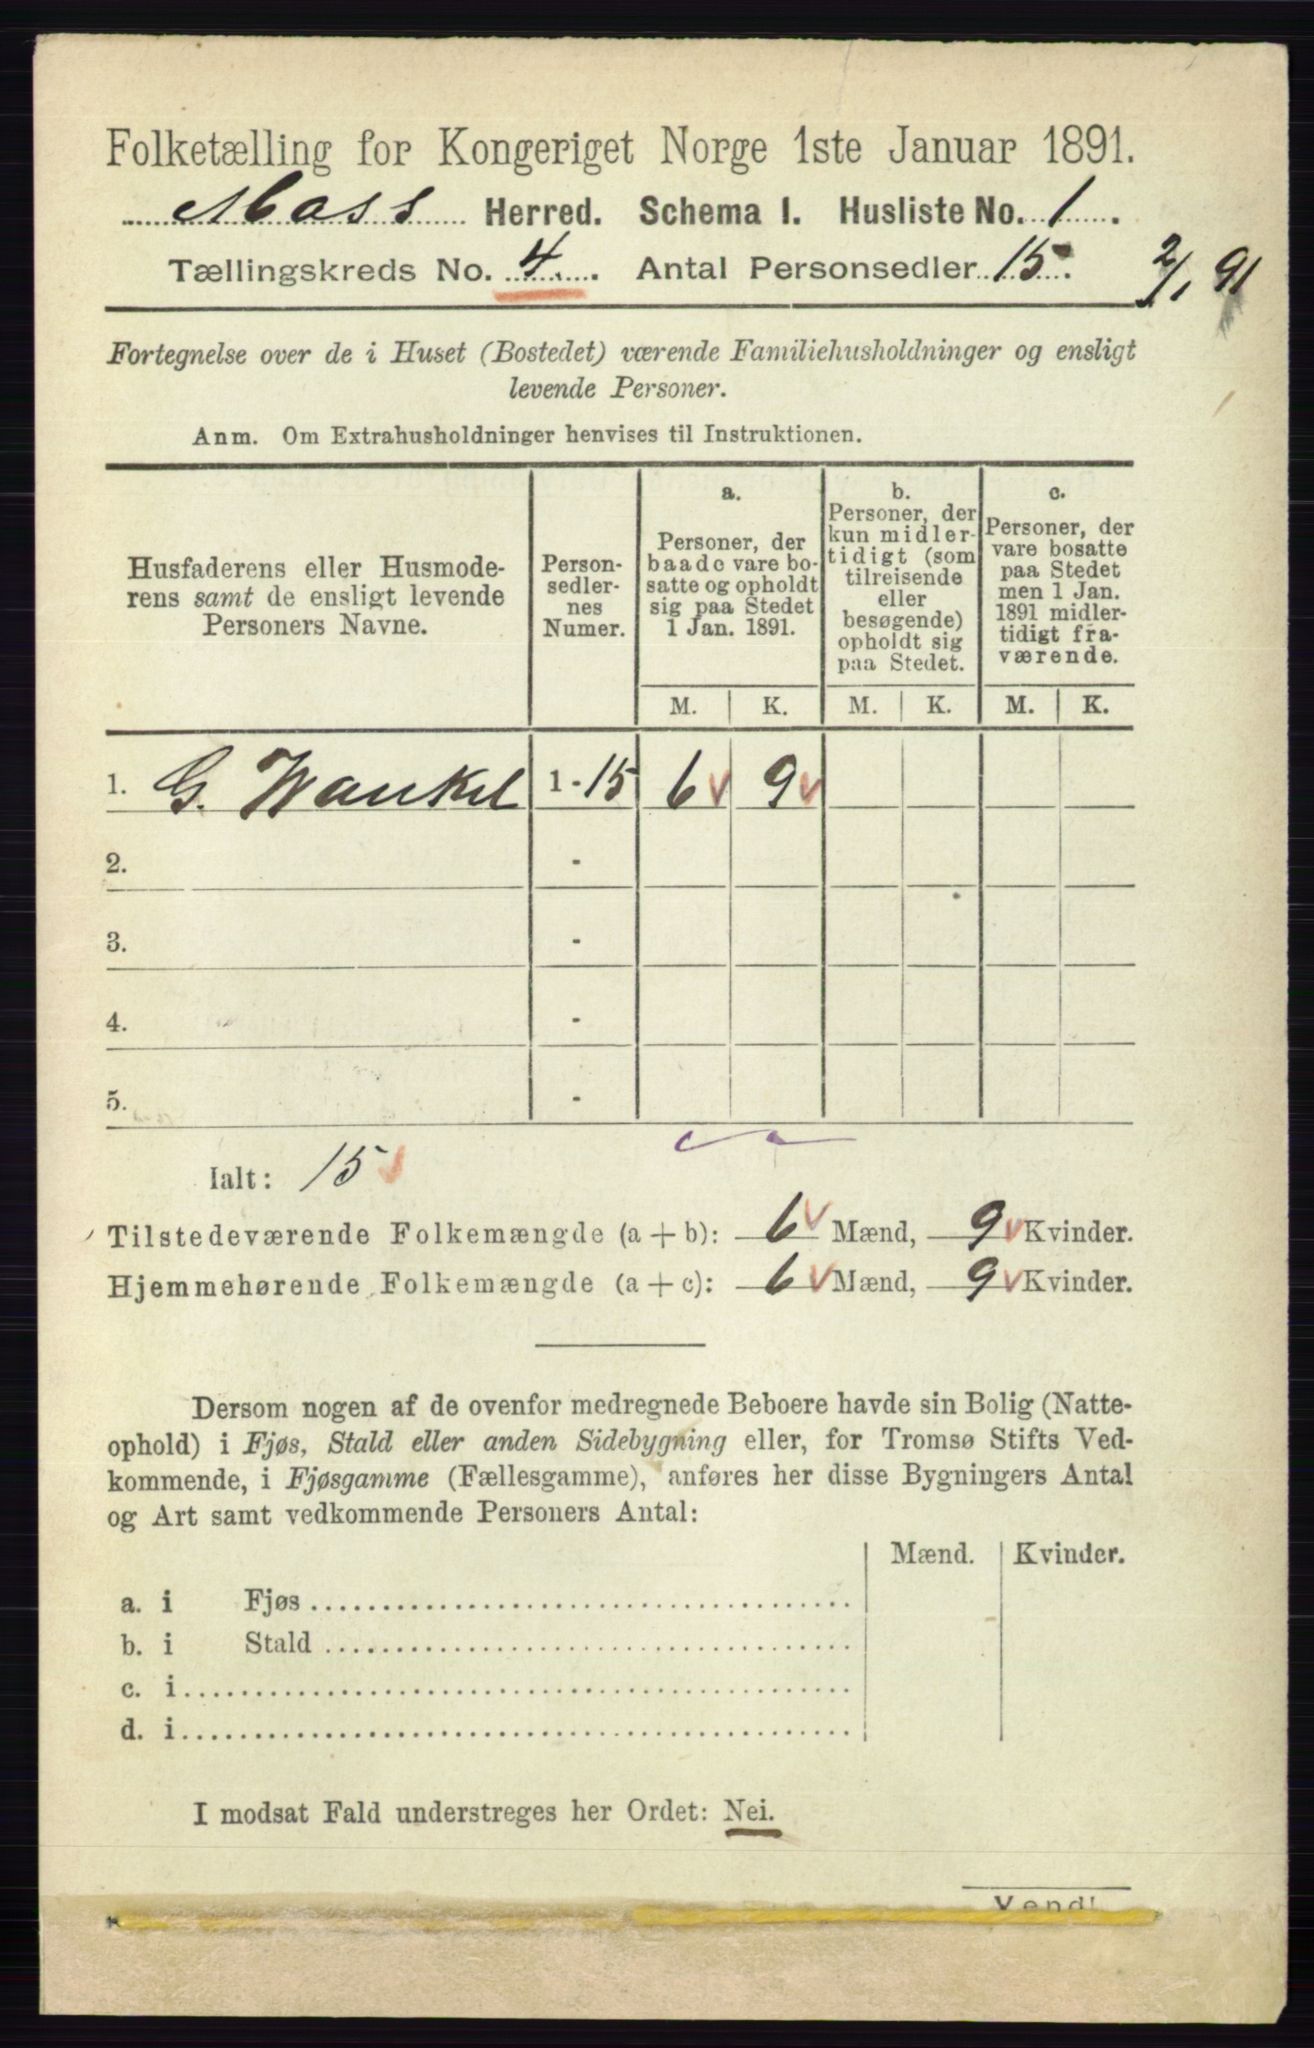 Folketælling for Kongeriget Norge 1ste Januar 1891.
Moss Herred. Schema I. Husliste No. 1.
Tællingskreds No. 4. Antal Personsedler 15. 2/1 91
Fortegnelse over de i Huset (Bostedet) værende Familiehusholdninger og ensligt
levende Personer.
Anm. Om Extrahusholdninger henvises til Instruktionen.
Husfaderens eller Husmode-
rens samt de ensligt levende
Personers Navne.
Person-
sedler-
nes
Numer.
a.
Personer, der
baade vare bo-
satte og opholdt
sig paa Stedet
1 Jan. 1891.
b.
Personer, der
kun midler-
tidigt (som
tilreisende
eller
besøgende)
opholdt sig
paa Stedet.
c.
Personer, der
vare bosatte
paa Stedet
men 1 Jan.
1891 midler-
tidigt fra-
værende.
M. K. M. K. M. K.
1. G. Wankel 1-15 6 9
2. -
3. -
4. -
5. -
Ialt: 15
Tilstedeværende Folkemængde (a + b): 6 Mænd, 9 Kvinder.
Hjemmehørende Folkemængde (a + c): 6 Mænd, 9 Kvinder.
Dersom nogen af de ovenfor medregnede Beboere havde sin Bolig (Natte-
ophold) i Fjøs, Stald eller anden Sidebygning eller, for Tromsø Stifts Ved-
kommende, i Fjøsgamme (Fællesgamme), anføres her disse Bygningers Antal
og Art samt vedkommende Personers Antal:
Mænd. Kvinder.
a. i Fjøs
b. i Stald
c. i
d. i
I modsat Fald understreges her Ordet: Nei.
Vend!